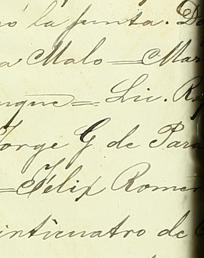 ó la junta. Do
a Malo — Mar
nque — Lic. R
Jorge G de Par
— Félix Romer
inticuatro de